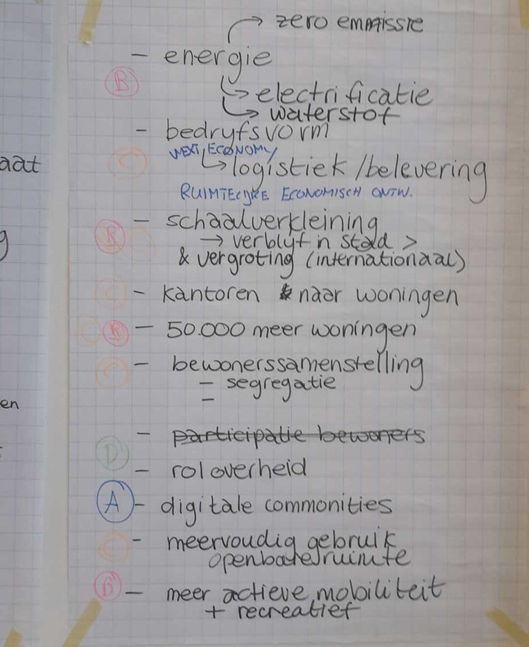 zero emmissie
- energie
B
electrificatie
waterstof
- bedryfsvorm
NEXT ECONOMY
C
logistiek / belevering
RUIMTELYKE ECONOMISCH ONTW.
- schaalverkleining
B
→ verblyf in stad >
& vergroting (internationaal)
C - kantoren & naar woningen
C B - 50.000 meer woningen
C - bewonerssamenstelling
- segregatie
-
- participatie bewoners
D
- rol overheid
A - digitale commonities
C - meervoudig gebruik
openbare ruimte
B - meer actieve mobiliteit
+ recreatief
aat
g
en